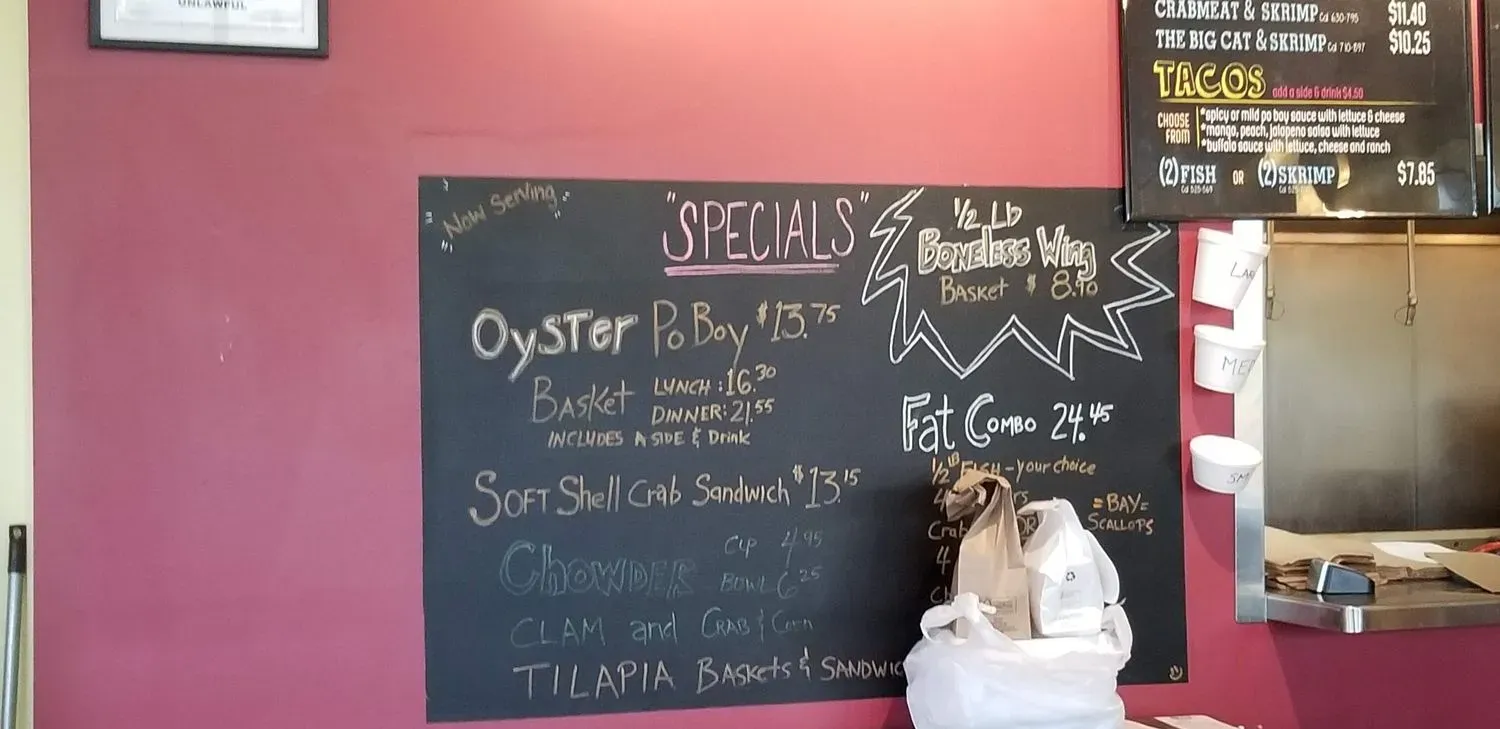 UNLAWFUL
"Now Serving"
"SPECIALS"
Oyster Po Boy $13.75
Basket LUNCH: 16.30
DINNER: 21.55
INCLUDES A SIDE & Drink
Soft Shell Crab Sandwich $13.15
Chowder Cup 4.95
Bowl 6.25
CLAM and CRAB & Corn
TILAPIA Baskets & SANDWIC
1/2 Lb
Boneless Wing
Basket $8.90
Fat Combo 24.45
1/2 LB FISH - your choice
4
Crab OR
4
=BAY=
SCALLOPS
CRABMEAT & SKRIMP Cal 630-795 $11.40
THE BIG CAT & SKRIMP Cal 710-897 $10.25
TACOS add a side & drink $4.50
CHOOSE FROM
*spicy or mild po boy sauce with lettuce & cheese
*mango, peach, jalapeno salsa with lettuce
*buffalo sauce with lettuce, cheese and ranch
(2) FISH OR (2) SKRIMP $7.85
Cal 525-569
LAR
MED
SM